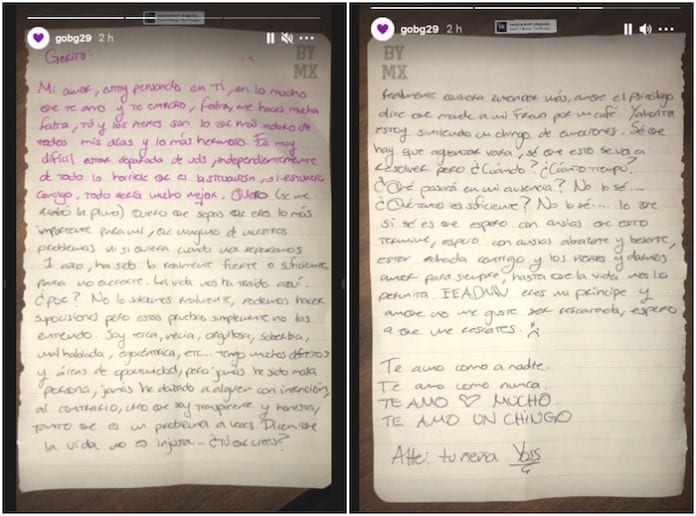 gobg29 2 h
BY
MX
Gerito:
Mi amor, estoy pensando en Ti, en lo mucho
que te amo y te extraño, Falta, me haces mucha
falta, tú y los nenes son lo que más adoro de
todos mis días y lo más hermoso. Es muy
difícil estar separada de uds, independientemente
de todo lo horrible que es la situación, si estuviera
contigo, todo sería mucho mejor. Quiero (se me
acabó la pluma) quiero que sepas que eres lo más
importante para mi, que ninguno de nuestros
problemas ni si quiera cuando nos separamos
1 año, ha sido lo realmente fuerte o suficiente
para no quererte. La vida nos ha traído aquí.
¿Por? No lo sabemos realmente, podemos hacer
suposiciones pero estas pruebas simplemente no las
entiendo. Soy terca, necia, orgullosa, soberbia,
mal hablada, egocéntrica, etc... tengo muchos defectos
y áreas de oportunidad, pero jamás he sido mala
persona, jamás he dañado a alguien con intención,
al contrario, creo que soy transparente y honesta,
tanto que es un problema a veces. Dicen que
la vida no es injusta... ¿Tú qué crees?
gobg29 2 h
BY
MX
Realmente quisiera entender más, aunque el psicólogo
dice que mande a mi Freud por un café. Yahorita
estoy sintiendo un chingo de emociones. Sé que
hay que aguantar vara, sé que esto se va a
resolver pero ¿Cuándo? ¿Cuánto tiempo?
¿Qué pasará en mi ausencia? No lo sé...
¿Qué tanto es suficiente? No lo sé.... lo que
si sé es que espero con ansias que esto
termine, espero con ansias abrazarte y besarte,
estar echada contigo y los nenes y darnos
amor para siempre, hasta que la vida nos lo
permita. EEADMV eres mi príncipe y
aunque no me guste ser rescatada, espero
a que me rescates.
Te amo como a nadie.
Te amo como nunca.
TE AMO MUCHO
TE AMO UN CHINGO
Atte: tu nena Yoss